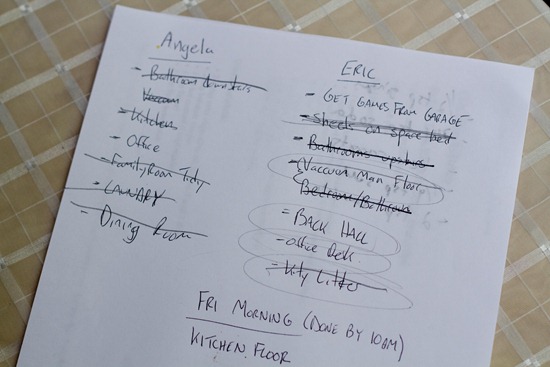 Angela
- Bathroom downstairs
Vacuum
- Kitchen
- Office
- Family Room Tidy
- LAUNDRY
- Dining Room
ERIC
- GET GAMES FROM GARAGE
- Sheets on spare bed
- Bathrooms upstairs
- Vaccum Main Floor
Bedroom/Bathroom
- BACK HALL
- Office Desk
- Kitty Litter
FRI MORNING (DONE BY 10AM)
KITCHEN FLOOR